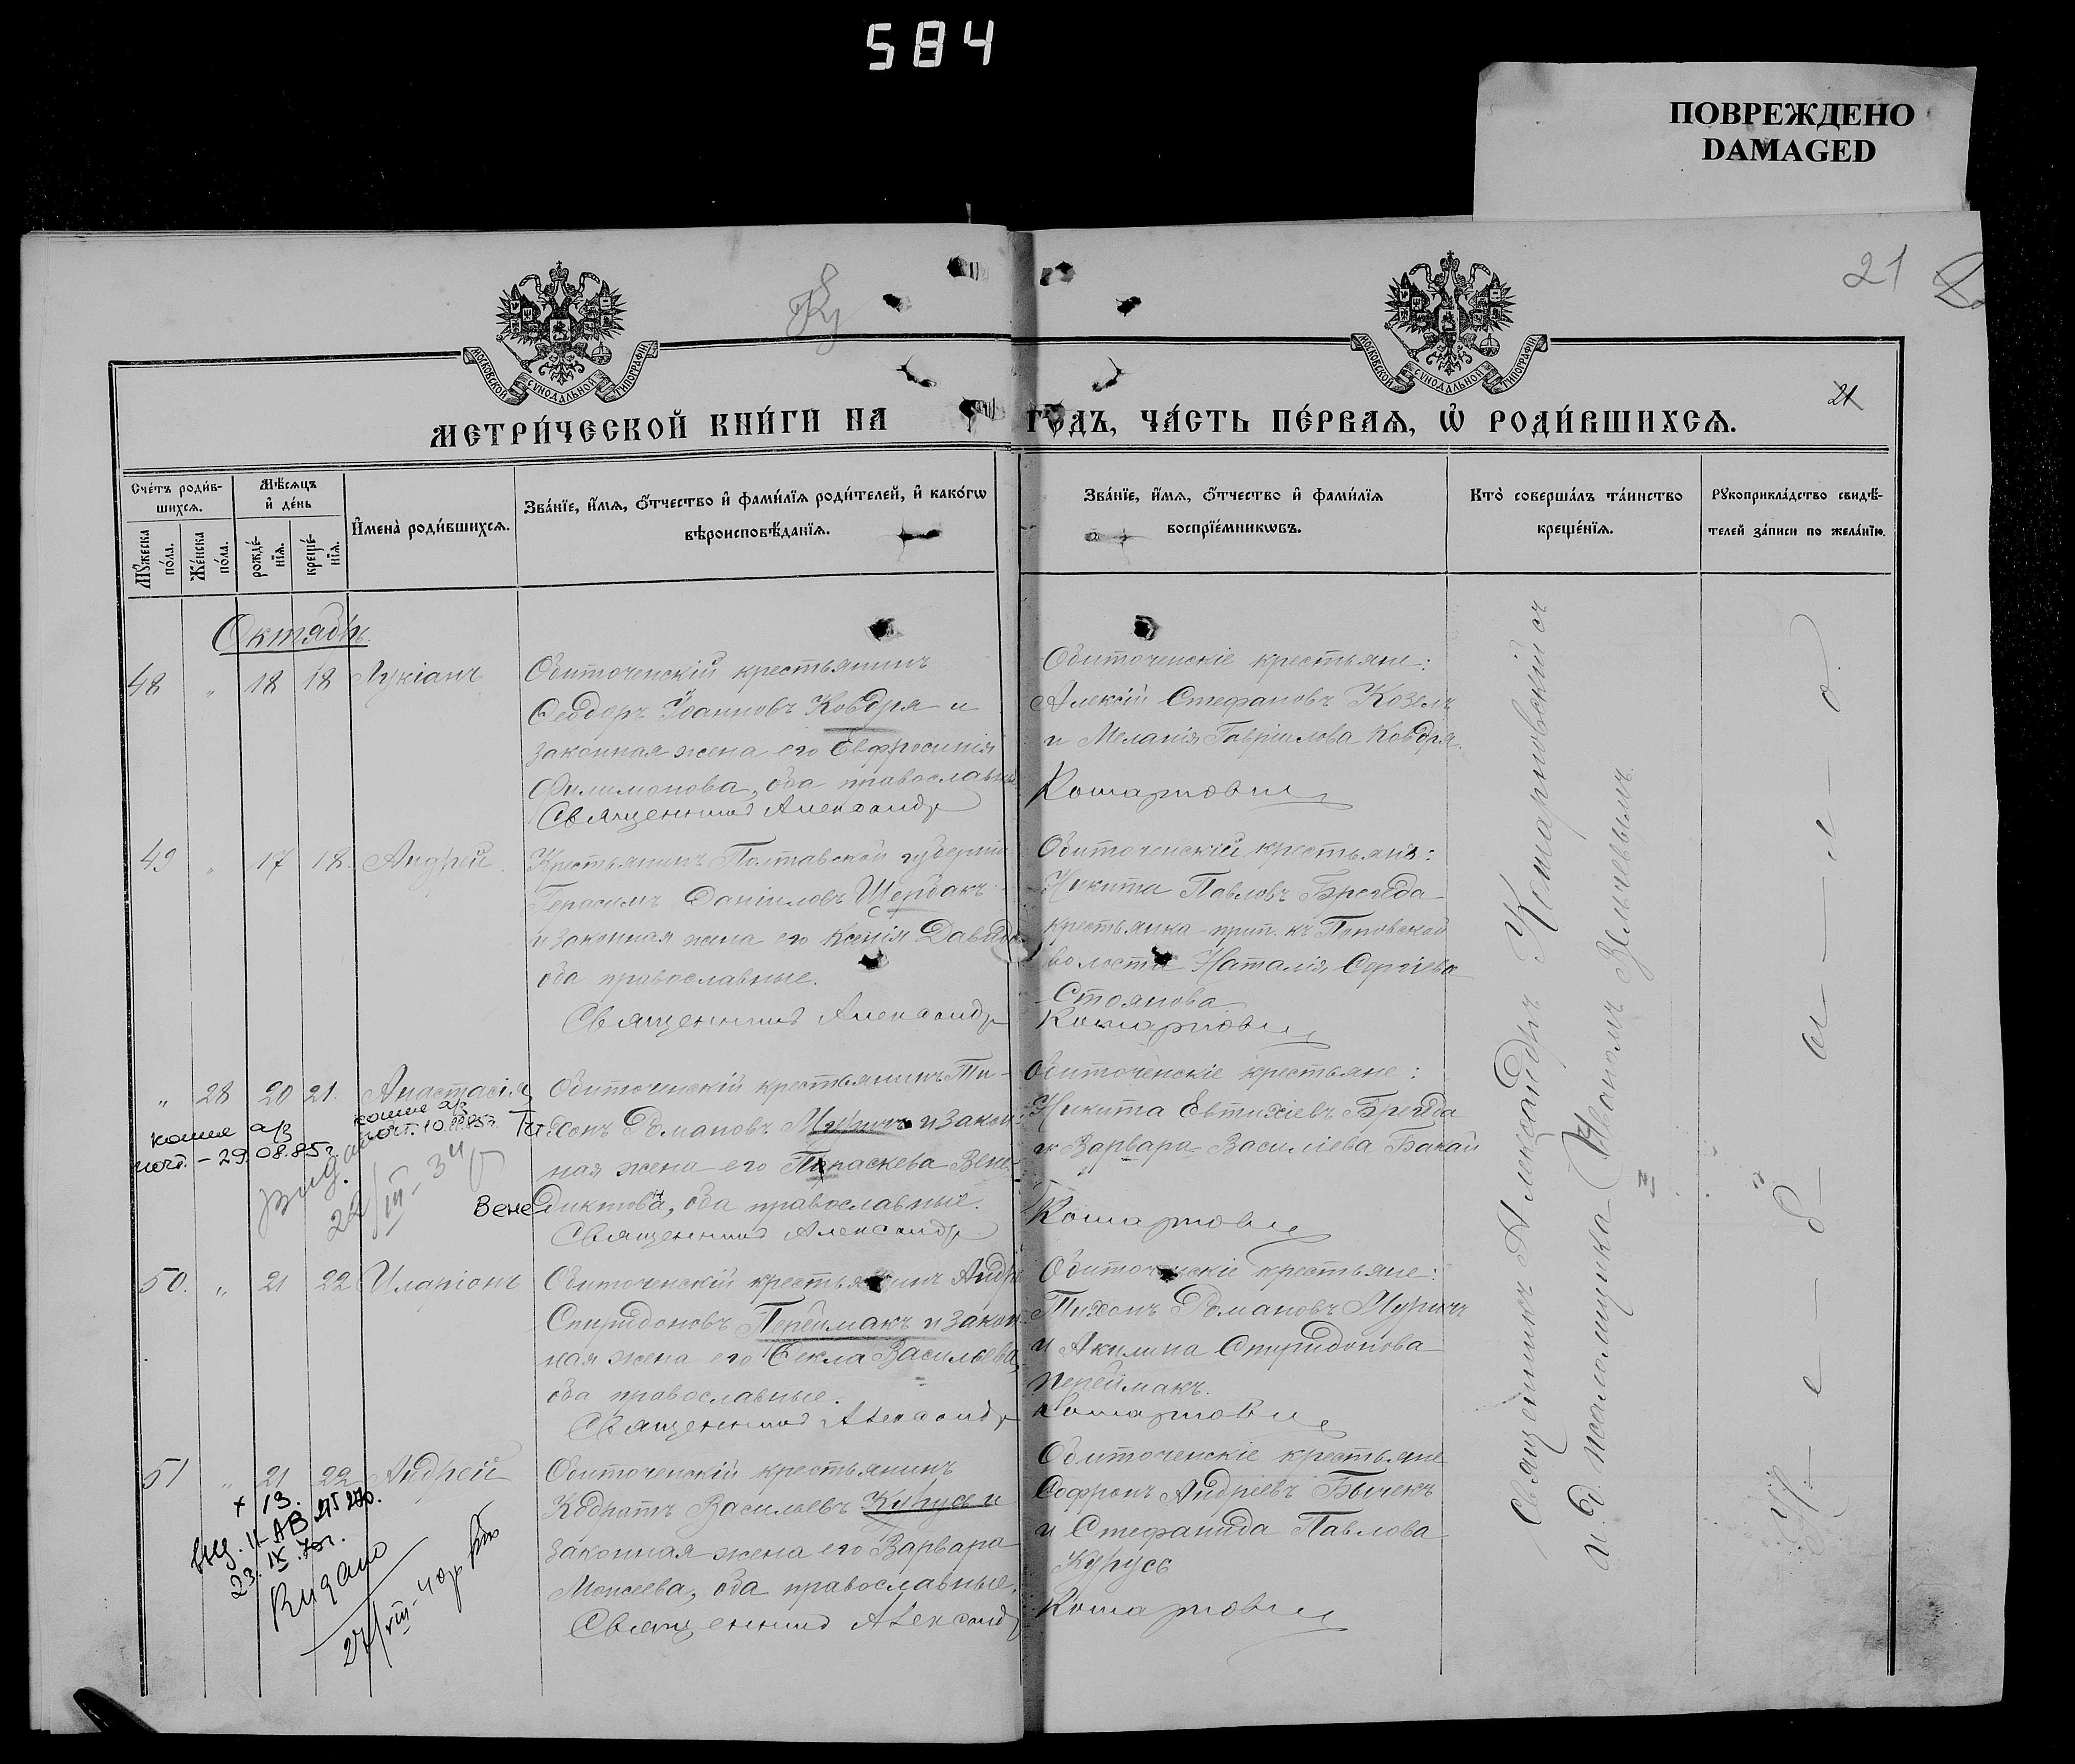 584
ПОВРЕЖДЕНО
DAMAGED
21
МОСКОВСКОЙ СѴНОДАЛЬНОЙ ТИПОГРАФІИ
МОСКОВСКОЙ СѴНОДАЛЬНОЙ ТИПОГРАФІИ
21
МЕТРИ́ЧЕСКОЙ КНИ́ГИ НА ГОДЪ, ЧА́СТЬ ПЕ́РВАѦ, Ѡ҆ РОДИ́ВШИХСѦ.
Сче́тъ роди́в-
шихсѧ.
Мꙋ́жеска по́ла.
Же́нска по́ла.
Мѣ́сѧцъ
и҆ де́нь
рожде́-
нїѧ.
креще́-
нїѧ.
И҆мена̀ роди́вшихсѧ.
Зва́нїе, и҆́мѧ, ѻ҆́тчество и҆ фами́лїѧ роди́телей, и҆ како́гѡ
вѣроисповѣ́данїѧ.
Зва́нїе, и҆́мѧ, ѻ҆́тчество и҆ фами́лїѧ
воспрїе́мникѡвъ.
Кто̀ соверша́лъ та́инство
креще́нїѧ.
Рꙋкоприкла́дство свидѣ́-
телей за́писи по жела́нїю.
Октябрь.
48 " 18 18 Лукіанъ
Обиточенскій крестьянинъ
Ѳеодоръ Іоанновъ Ковдря и
законная жена его Евфросинія
Филимонова, оба православные
Священникъ Александръ
Обиточенскіе крестьяне:
Алексій Стефановъ Козелъ
и Меланія Гавріилова Ковдря.
Комарновскій
49 " 17 18. Андрей.
Крестьянинъ Полтавской губерніи
Герасимъ Даніиловъ Щербакъ
и законная жена его Ксенія Давидо
оба православные.
Священникъ Александръ
Обиточенскій крестьянъ:
Никита Павловъ Брегеда
крестьянка прип. къ Поповской
волости Наталія Сергіева
Стоянова
Комарновскій
" 28 20 21. Анастасія
Обиточенскій крестьянинъ Ти-
Ти хонъ Романовъ Муричъ и закон-
ная жена его Параскева Вене-
Вене диктова, оба православные.
Священникъ Александръ
копия а/з
почт. - 29.08.85г.
копия а/з
Обиточенскіе крестьяне:
Никита Евтихіевъ Брегеда
и Варвара Василіева Бакай
Комарновскій
50. " 21 22 Иларіонъ
Обиточенскій крестьянинъ Андрей
Спиридоновъ Переймакъ и закон-
ная жена его Ѳекла Васильева,
оба православные.
Священникъ Александръ
Обиточенскіе крестьяне:
Тихонъ Романовъ Муричъ
и Акилина Спиридонова
Переймакъ.
Комарновскій
51 " 21 22 Андрей
Обиточенскій крестьянинъ
Кодратъ Васильевъ Курусь и
законная жена его Варвара
Моисеева, оба православные.
Священникъ Александръ
Видано
Обиточенскіе крестьяне
Софронъ Андріевъ Бычекъ
и Стефанида Павлова
Курусь
Комарновскій
Священникъ Александръ Комарновскій съ
и. д. псаломщика Иваномъ Зеличевымъ.